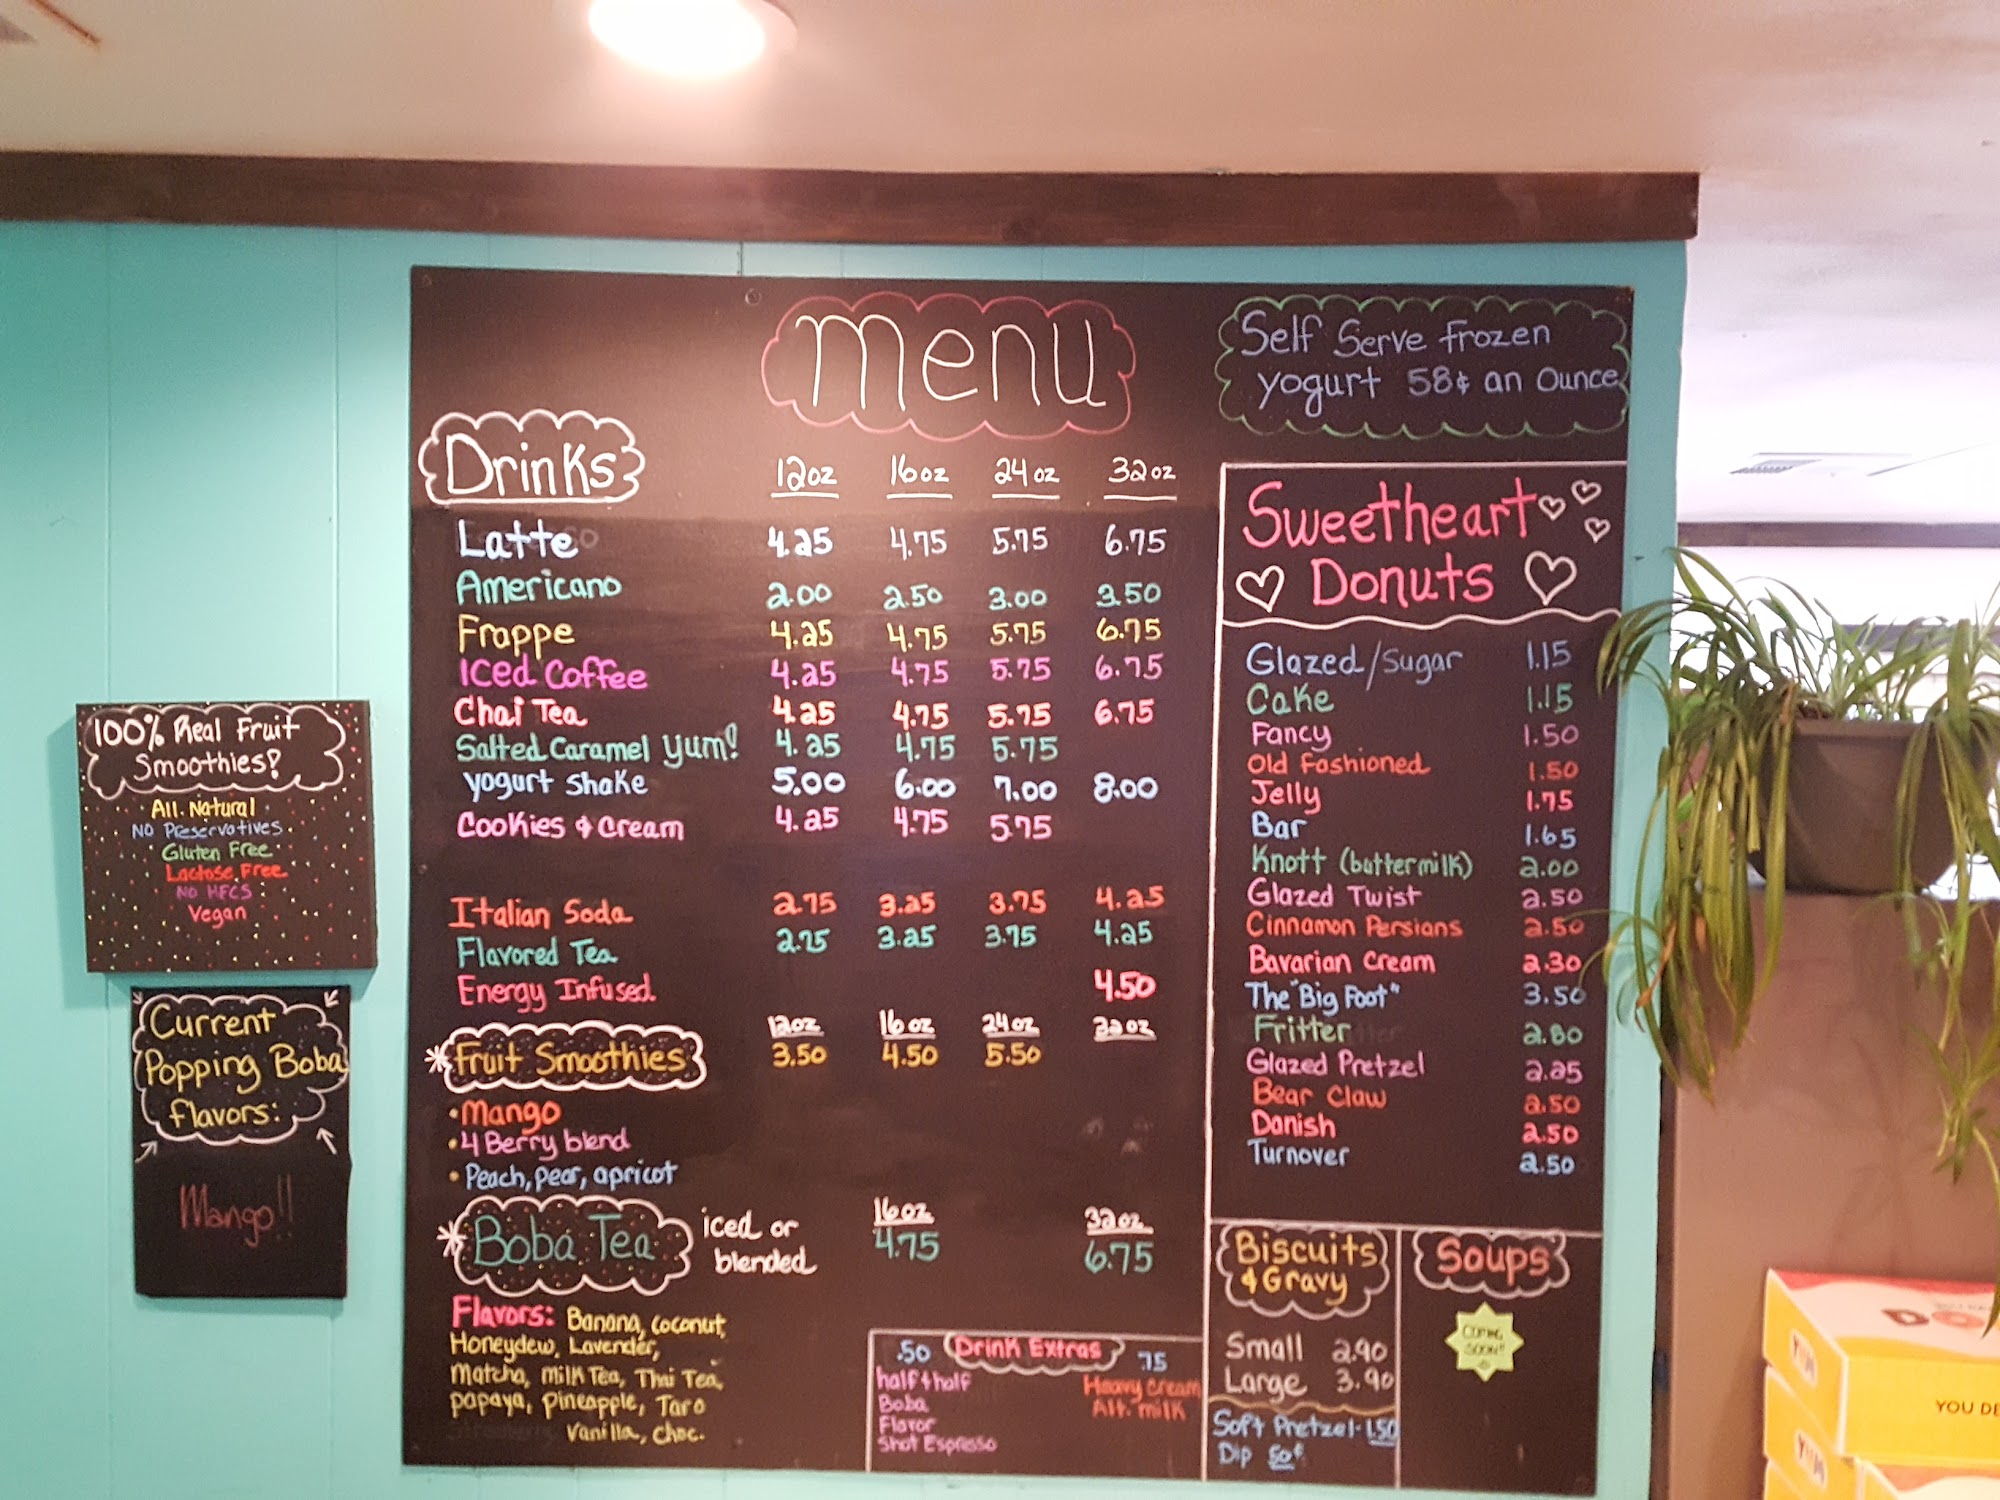 Menu
Self Serve frozen
yogurt 58¢ an Ounce
Drinks
12oz 16oz 24oz 32oz
Latte 4.25 4.75 5.75 6.75
Americano 2.00 2.50 3.00 3.50
Frappe 4.25 4.75 5.75 6.75
Iced Coffee 4.25 4.75 5.75 6.75
Chai Tea 4.25 4.75 5.75 6.75
Salted Caramel Yum! 4.25 4.75 5.75
yogurt Shake 5.00 6.00 7.00 8.00
Cookies & Cream 4.25 4.75 5.75
Italian Soda 2.75 3.25 3.75 4.25
Flavored Tea 2.75 3.25 3.75 4.25
Energy Infused. 4.50
12oz 16oz 24oz 32oz
*Fruit Smoothies 3.50 4.50 5.50
• Mango
• 4 Berry blend
• Peach, pear, apricot
16oz 32oz
*Boba Tea iced or
blended 4.75 6.75
Flavors: Banana, coconut,
Honeydew, Lavender,
Matcha, Milk Tea, Thai Tea,
papaya, Pineapple, Taro
Vanilla, Choc.
Drink Extras
.50 .75
half & half Heavy Cream
Boba Alt. milk
Flavor
Shot Espresso
Sweetheart
Donuts
Glazed/Sugar 1.15
Cake 1.15
Fancy 1.50
Old Fashioned 1.50
Jelly 1.75
Bar 1.65
Knott (buttermilk) 2.00
Glazed Twist 2.50
Cinnamon Persians 2.50
Bavarian Cream 2.30
The "Big Foot" 3.50
Fritter 2.80
Glazed Pretzel 2.25
Bear Claw 2.50
Danish 2.50
Turnover 2.50
Biscuits
& Gravy
Small 2.90
Large 3.90
Soft Pretzel - 1.50
Dip 50¢
Soups
Coming
Soon!!
100% Real Fruit
Smoothies!
All Natural
No Preservatives
Gluten Free
Lactose Free
No HFCS
Vegan
Current
Popping Boba
flavors:
Mango!!
YOU DE